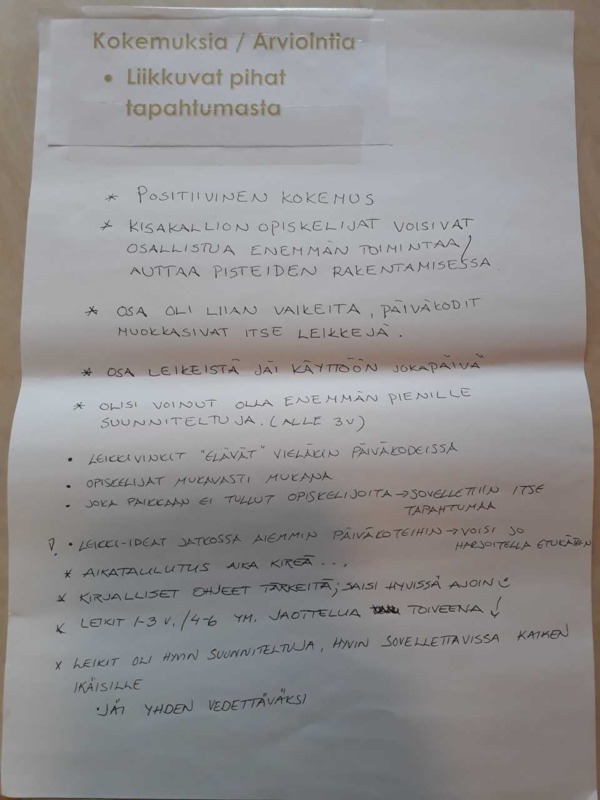 Kokemuksia / Arviointia
• Liikkuvat pihat
tapahtumasta
* POSITIIVINEN KOKEMUS
* KISAKALLION OPISKELIJAT VOISIVAT
OSALLISTUA ENEMMÄN TOIMINTAA/
AUTTAA PISTEIDEN RAKENTAMISESSA.
* OSA OLI LIIAN VAIKEITA, PÄIVÄKODIT
MUOKKASIVAT ITSE LEIKKEJÄ.
* OSA LEIKEISTÄ JÄI KÄYTTÖÖN JOKAPÄIVÄ
* OLISI VOINUT OLLA ENEMMÄN PIENILLE
SUUNNITELTUJA. (ALLE 3V)
• LEIKKIVINKIT "ELÄVÄT" VIELÄKIN PÄIVÄKODEISSA
• OPISKELIJAT MUKAVASTI MUKANA
• JOKA PAIKKAAN EI TULLUT OPISKELIJOITA → SOVELLETTIIN ITSE
TAPAHTUMAA
! • LEIKKI-IDEAT JATKOSSA AIEMMIN PÄIVÄKOTEIHIN → VOISI JO
HARJOITELLA ETUKÄTEEN
* AIKATAULUTUS AIKA KIREÄ...
* KIRJALLISET OHJEET TÄRKEITÄ; SAISI HYVISSÄ AJOIN
* LEIKIT 1-3 V. / 4-6 YM. JAOTTELUA TOIVEENA !
* LEIKIT OLI HYVIN SUUNNITELTUJA, HYVIN SOVELLETTAVISSA KAIKEN
IKÄISILLE
• JÄI YHDEN VEDETTÄVÄKSI